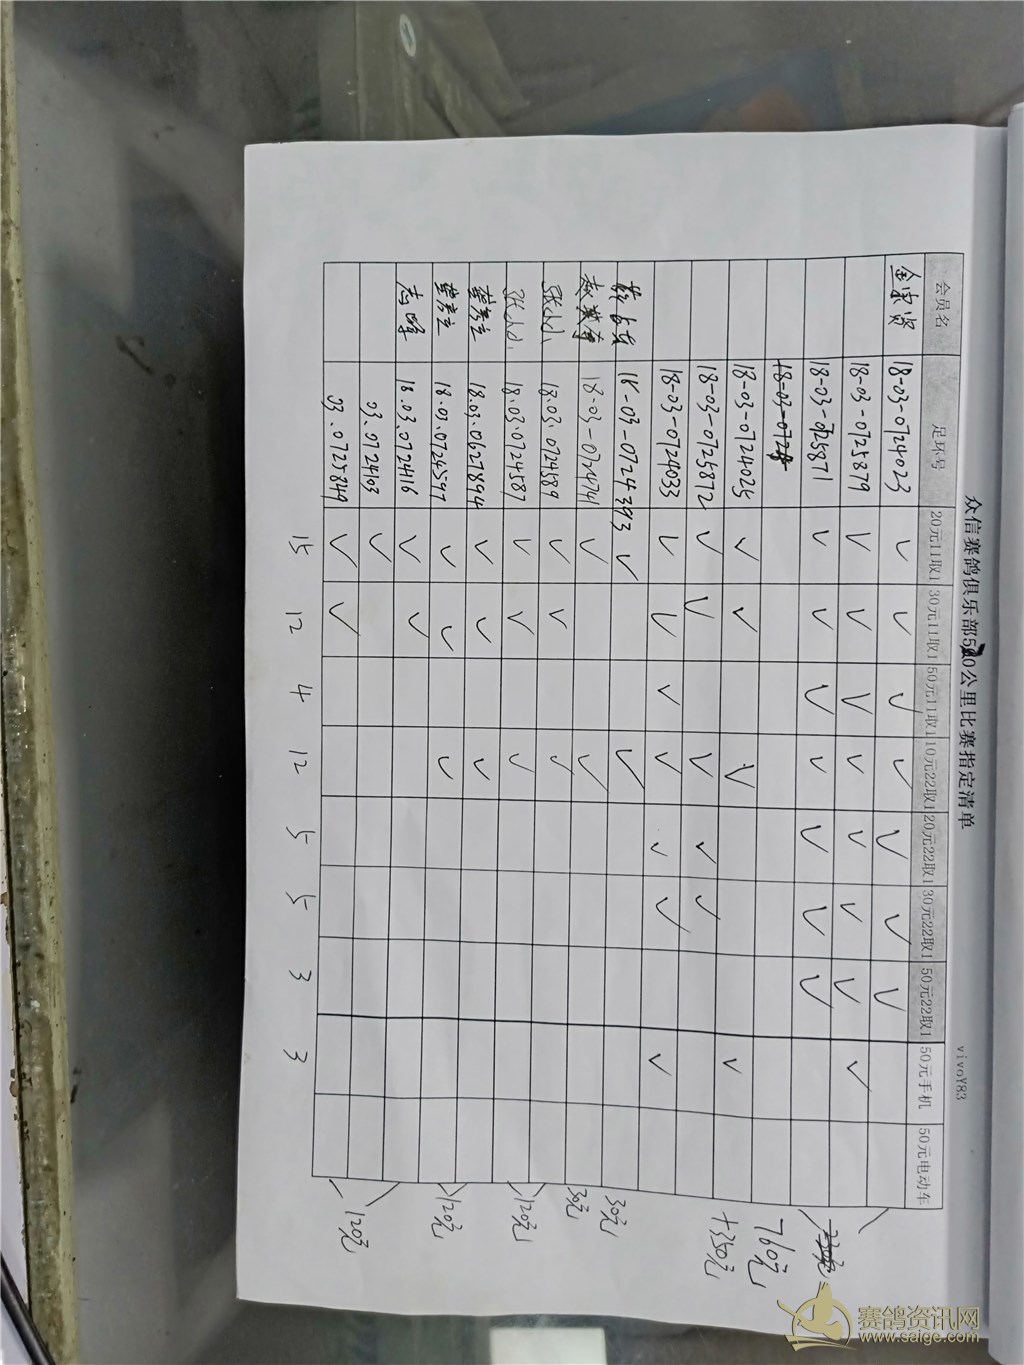 众信赛鸽俱乐部510公里比赛指定清单
vivoY83
会员名 足环号 20元11取1 30元11取1 50元11取1 10元22取1 20元22取1 30元22取1 50元22取1 50元手机 50元电动车
18-03-0724023 ✓ ✓ ✓ ✓ ✓ ✓ ✓
18-03-0725879 ✓ ✓ ✓ ✓ ✓ ✓ ✓ ✓
18-03-0725871 ✓ ✓ ✓ ✓ ✓ ✓ ✓
18-03-0724025 ✓ ✓ ✓ ✓
760元
18-03-0725872 ✓ ✓ ✓ ✓ ✓
+350元
18-03-0724033 ✓ ✓ ✓ ✓ ✓ ✓ ✓
18-03-0724393 ✓ ✓ 30元
18-03-0724741 ✓ ✓ 30元
18.03.0724589 ✓ ✓ ✓
18.03.0724587 ✓ ✓ ✓ 120元
18.03.0627894 ✓ ✓ ✓
18.01.0724597 ✓ ✓ ✓ 120元
18.03.0724416 ✓ ✓
03.0724103 ✓
03.0725849 ✓ ✓ 120元
15 12 4 12 5 5 3 3
赛鸽资讯网
www.saige.com